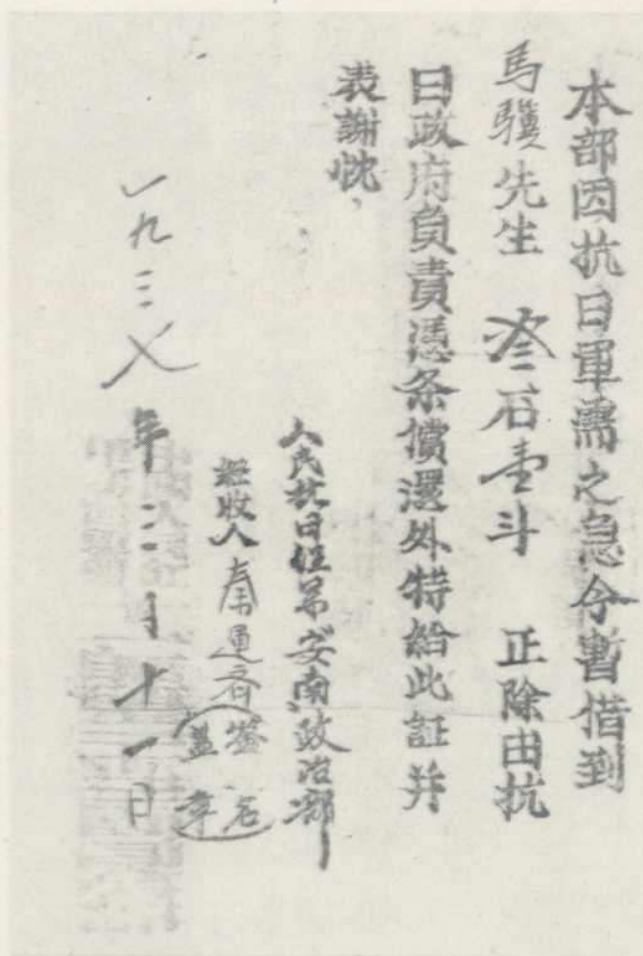 本部因抗日軍需之急今暫借到
馬驥先生 叁石壹斗 正除由抗
日政府負責憑条償還外特給此証并
表謝忱，
人民抗日 安南政治部
經收人秦 簽名
蓋章
一九三乂年三月十一日